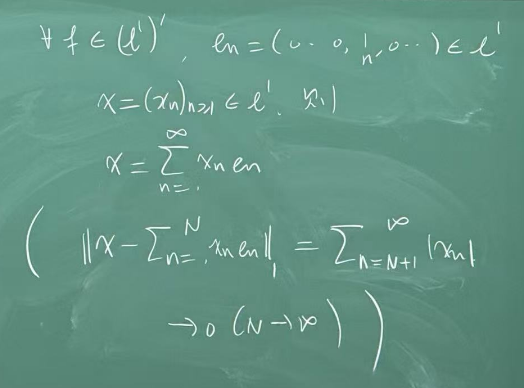 ∀ f ∈ (ℓ¹)', en = (0 ‥ 0, 1, 0 ⋯) ∈ ℓ¹
n
x = (xn)n≥1 ∈ ℓ¹, n≥1
x = ∑_{n=1}^{∞} xn en
( ‖x − ∑_{n=1}^{N} xn en‖₁ = ∑_{n=N+1}^{∞} |xn|
→ 0 (N → ∞) )